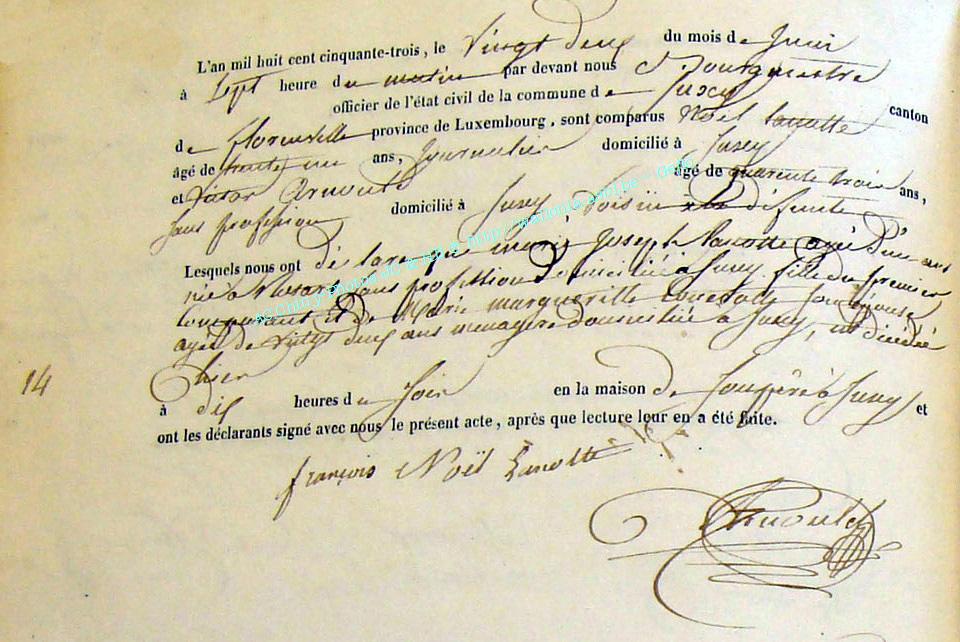 L'an mil huit cent cinquante-trois, le Vingt deux du mois de Juin
à Sept heure du matin par devant nous Bourgmestre
officier de l'état civil de la commune de Suxy canton
de florenville province de Luxembourg, sont comparus Noël Lanotte
âgé de trente un ans, Journalier domicilié à Suxy
et Victor Arnould âgé de quarente trois ans,
Sans profession domicilié à Suxy, Voisin défunte
Lesquels nous ont déclaré que marie Joseph Lanotte agée D'un ans
née à Sans profession Domiciliée à Suxy fille du premier
Comparant et de Marie margueritte Son épouse
agée de Vingt deux ans menagère domiciliée à Suxy, est décédée
hier
14
à dix heures du Soir en la maison de Son père à Suxy et
ont les déclarants signé avec nous le présent acte, après que lecture leur en a été faite.
françois Noël Lanotte
Arnould